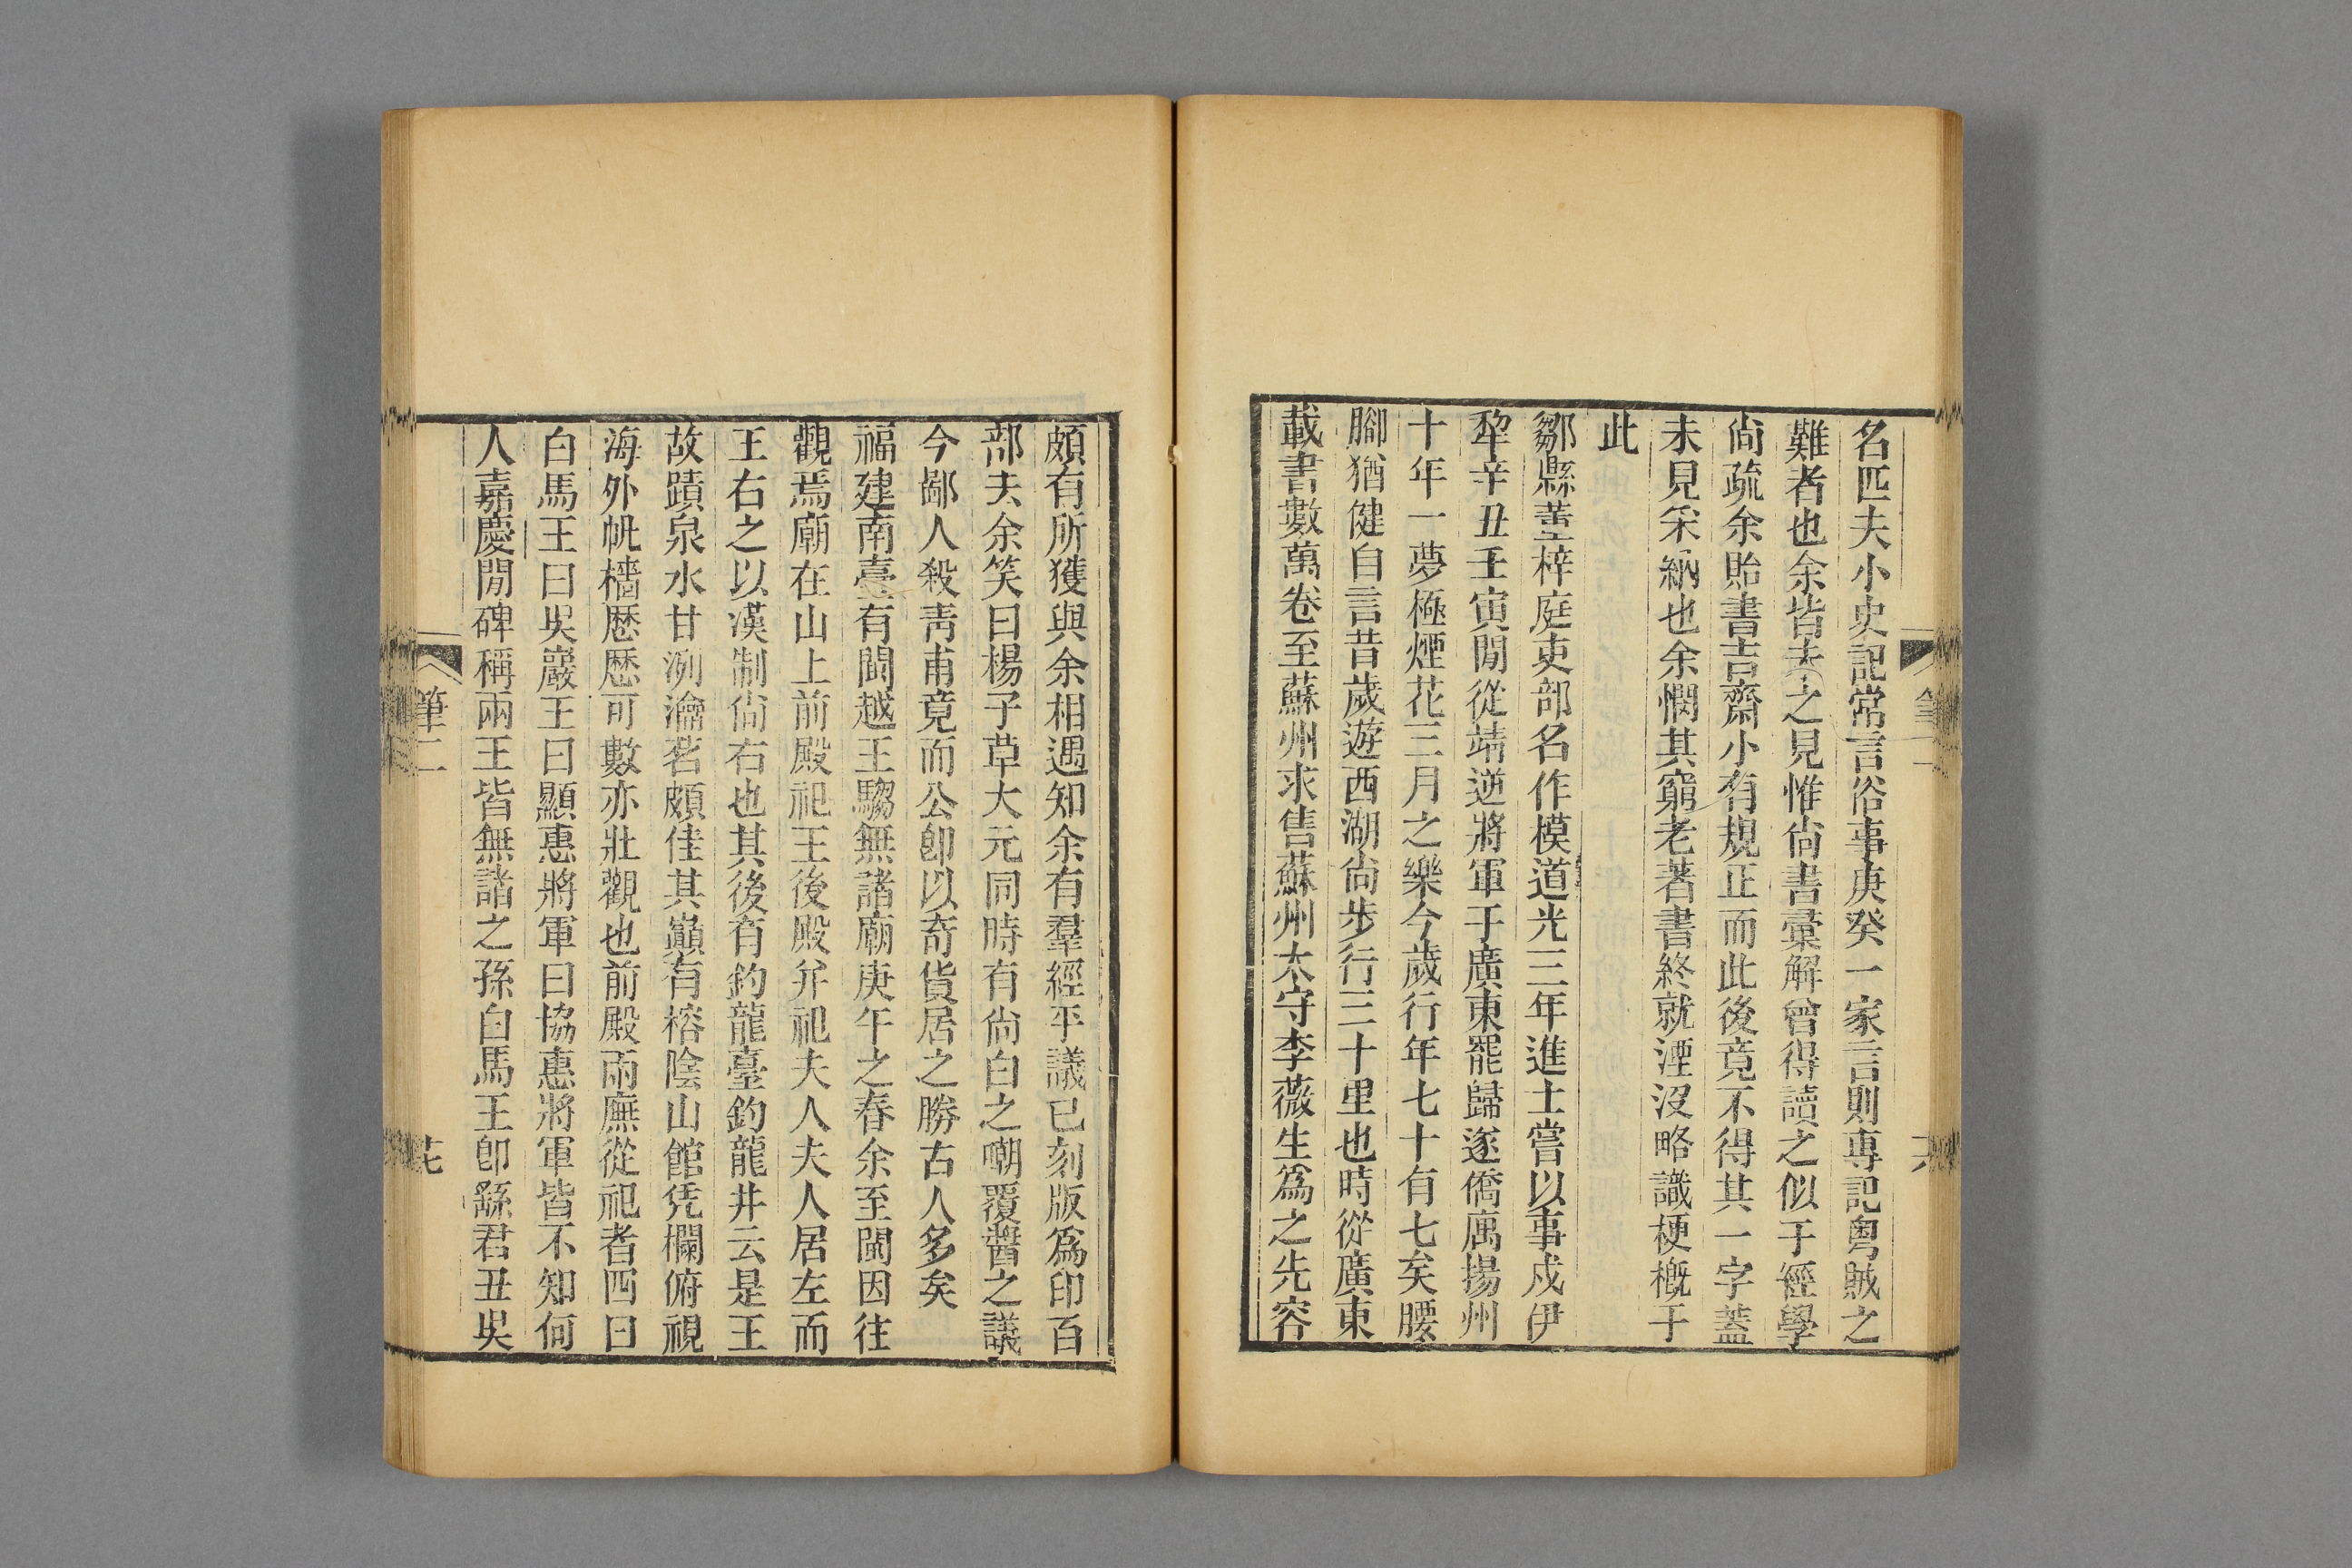 名匹夫小史記常言俗事庚癸一家言則專記粵賊之
難者也余皆未之見惟尙書彙解曾得讀之似于經學
尙疏余貽書吉齋小有規正而此後竟不得其一字蓋
未見采納也余憫其窮老著書終就湮沒略識梗槪于
此
鄒縣董梓庭吏部名作模道光三年進士嘗以事戍伊
犂辛丑壬寅閒從靖逆將軍于廣東罷歸遂僑寓揚州
十年一夢極煙花三月之樂今歲行年七十有七矣腰
腳猶健自言昔歲遊西湖尙步行三十里也時從廣東
載書數萬卷至蘇州求售蘇州太守李薇生爲之先容
頗有所獲與余相遇知余有羣經平議已刻版爲印百
部去余笑曰楊子草大元同時有尙白之嘲覆醬之議
今鄙人殺靑甫竟而公卽以奇貨居之勝古人多矣
福建南臺有閩越王騶無諸廟庚午之春余至閩因往
觀焉廟在山上前殿祀王後殿幷祀夫人夫人居左而
王右之以漢制尙右也其後有釣龍臺釣龍井云是王
故蹟泉水甘洌瀹茗頗佳其巓有榕陰山館凭欄俯視
海外帆檣歷歷可數亦壯觀也前殿兩廡從祀者四曰
白馬王曰吳巖王曰顯惠將軍曰協惠將軍皆不知何
人嘉慶閒碑稱兩王皆無諸之孫白馬王卽繇君丑吳
筆二